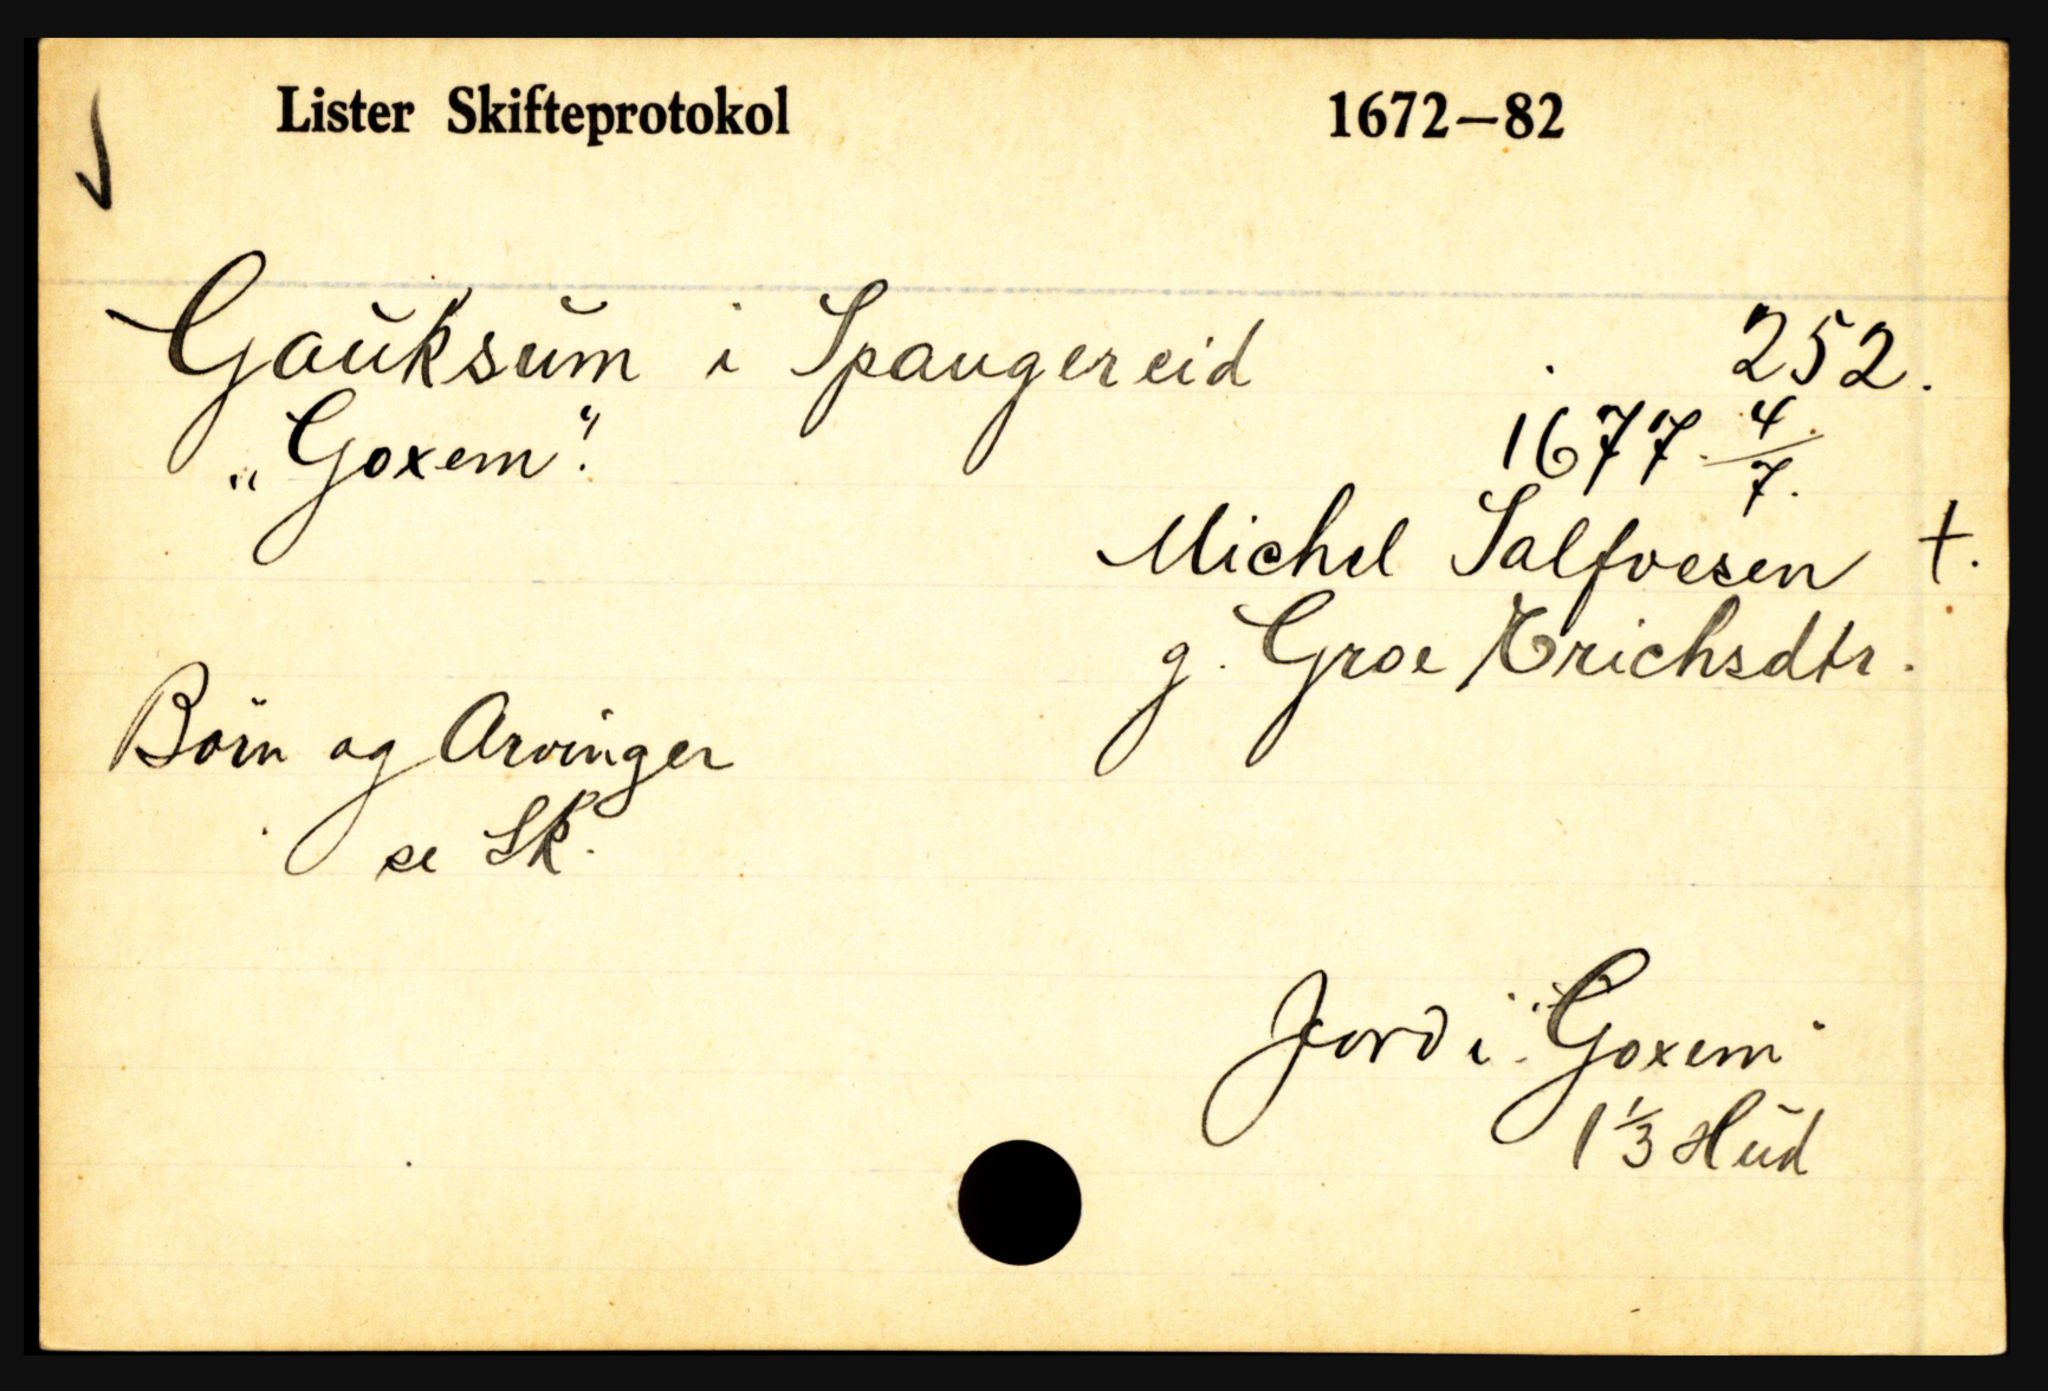 Lister Skifteprotokol 1672–82
Gauksum i Spangereid 252.
„Goxem".
1677. 4/7.
Michel Salfvesen †.
g. Groe Erichsdtr.
Börn og Arvinger
se Sk.
Jord i „Goxem"
1 1/3 Hud